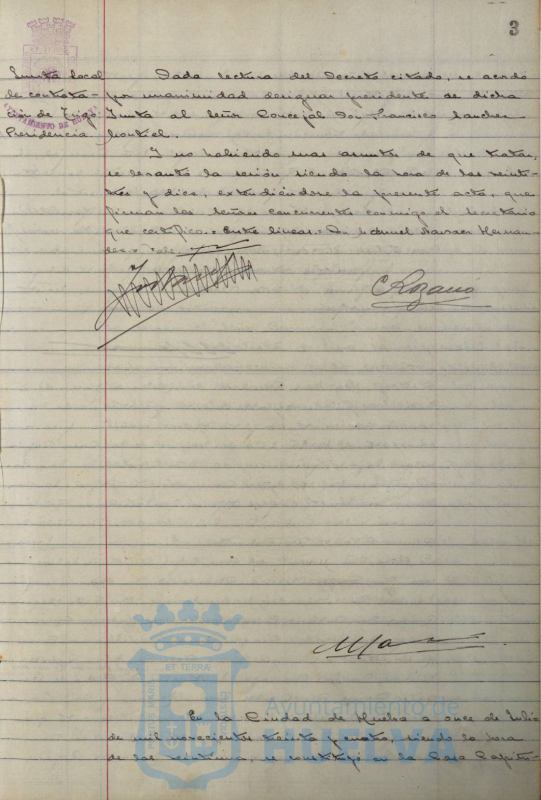 3
Junta local
de contrata-
ción de Trigo.
Presidencia
Dada lectura del Decreto citado, se acordó
por unanimidad designar presidente de dicha
Junta al señor Concejal Don Francisco Sanchez
Montiel.
Y no habiendo mas asuntos de que tratar,
se levantó la sesión siendo la hora de las veinti-
tres y diez, extendiéndose la presente acta, que
firman los señores concurrentes conmigo el Secretario
que certifico.= Entre lineas.= Don Manuel Narvaez Hernan-
dez = Vale.
C Rozano
ET TERRAE
Ayuntamiento de
HUELVA
En la Ciudad de Huelva a once de Julio
de mil novecientos treinta y cuatro, siendo la hora
de las veintiuna, se constituyó en la Casa Capitu-